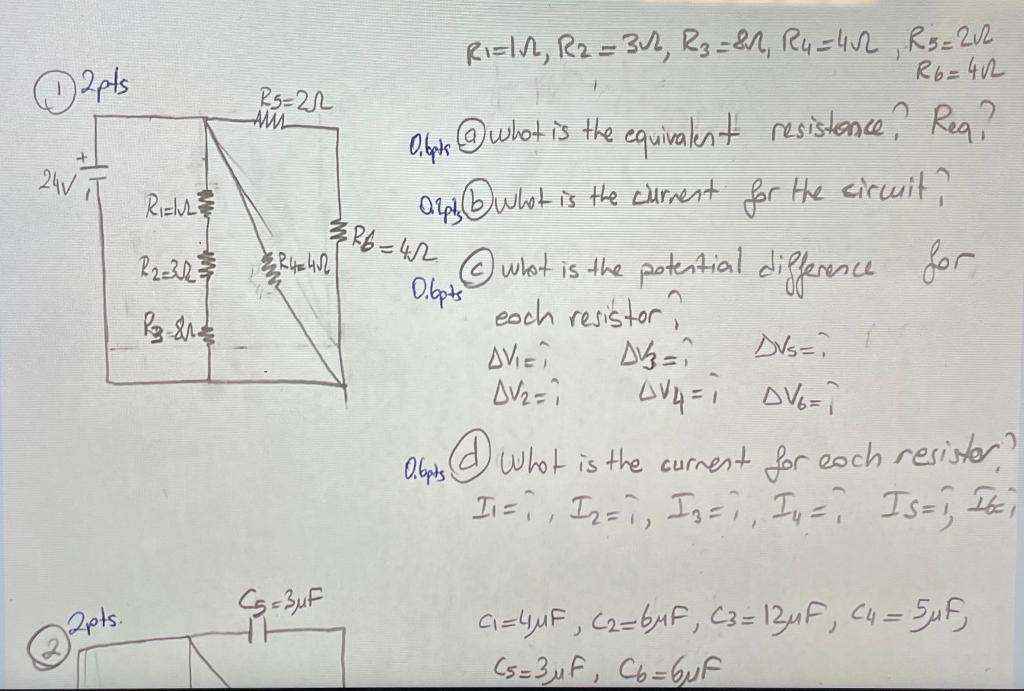 R1=1Ω, R2=3Ω, R3=8Ω, R4=4Ω, R5=2Ω
R6=4Ω
① 2pts
R5=2Ω
0.6pts ⓐ what is the equivalent resistance? Req?
+
24V
R1=1Ω
0.2pts ⓑ what is the current for the circuit?
R2=3Ω
R4=4Ω
R6=4Ω
R3=8Ω
0.6pts ⓒ what is the potential difference for
each resistor?
ΔV1=? ΔV3=? ΔV5=?
ΔV2=? ΔV4=? ΔV6=?
0.6pts ⓓ what is the current for each resistor?
I1=?, I2=?, I3=?, I4=? I5=?, I6=?
② 2pts.
C5=3μF
C1=4μF, C2=6μF, C3=12μF, C4=5μF,
C5=3μF, C6=6μF